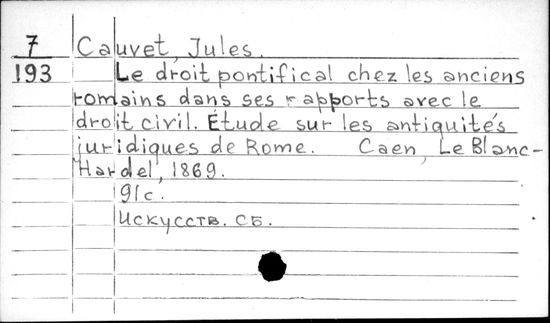 7 Cauvet, Jules.
193 Le droit pontifical chez les anciens
romains dans ses rapports avec le
droit civil. Étude sur les antiquités
juridiques de Rome. Caen, Le Blanc-
Hardel, 1869.
91c.
Искусств. сб.